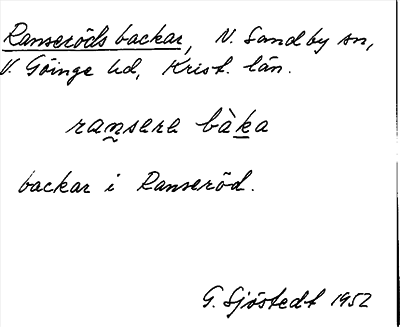 Ranseröds backar, N. Sandby sn,
V. Göinge hd, Krist. län.
ran̰sere bàk̲a
backar i Ranseröd.
G. Sjöstedt 1952